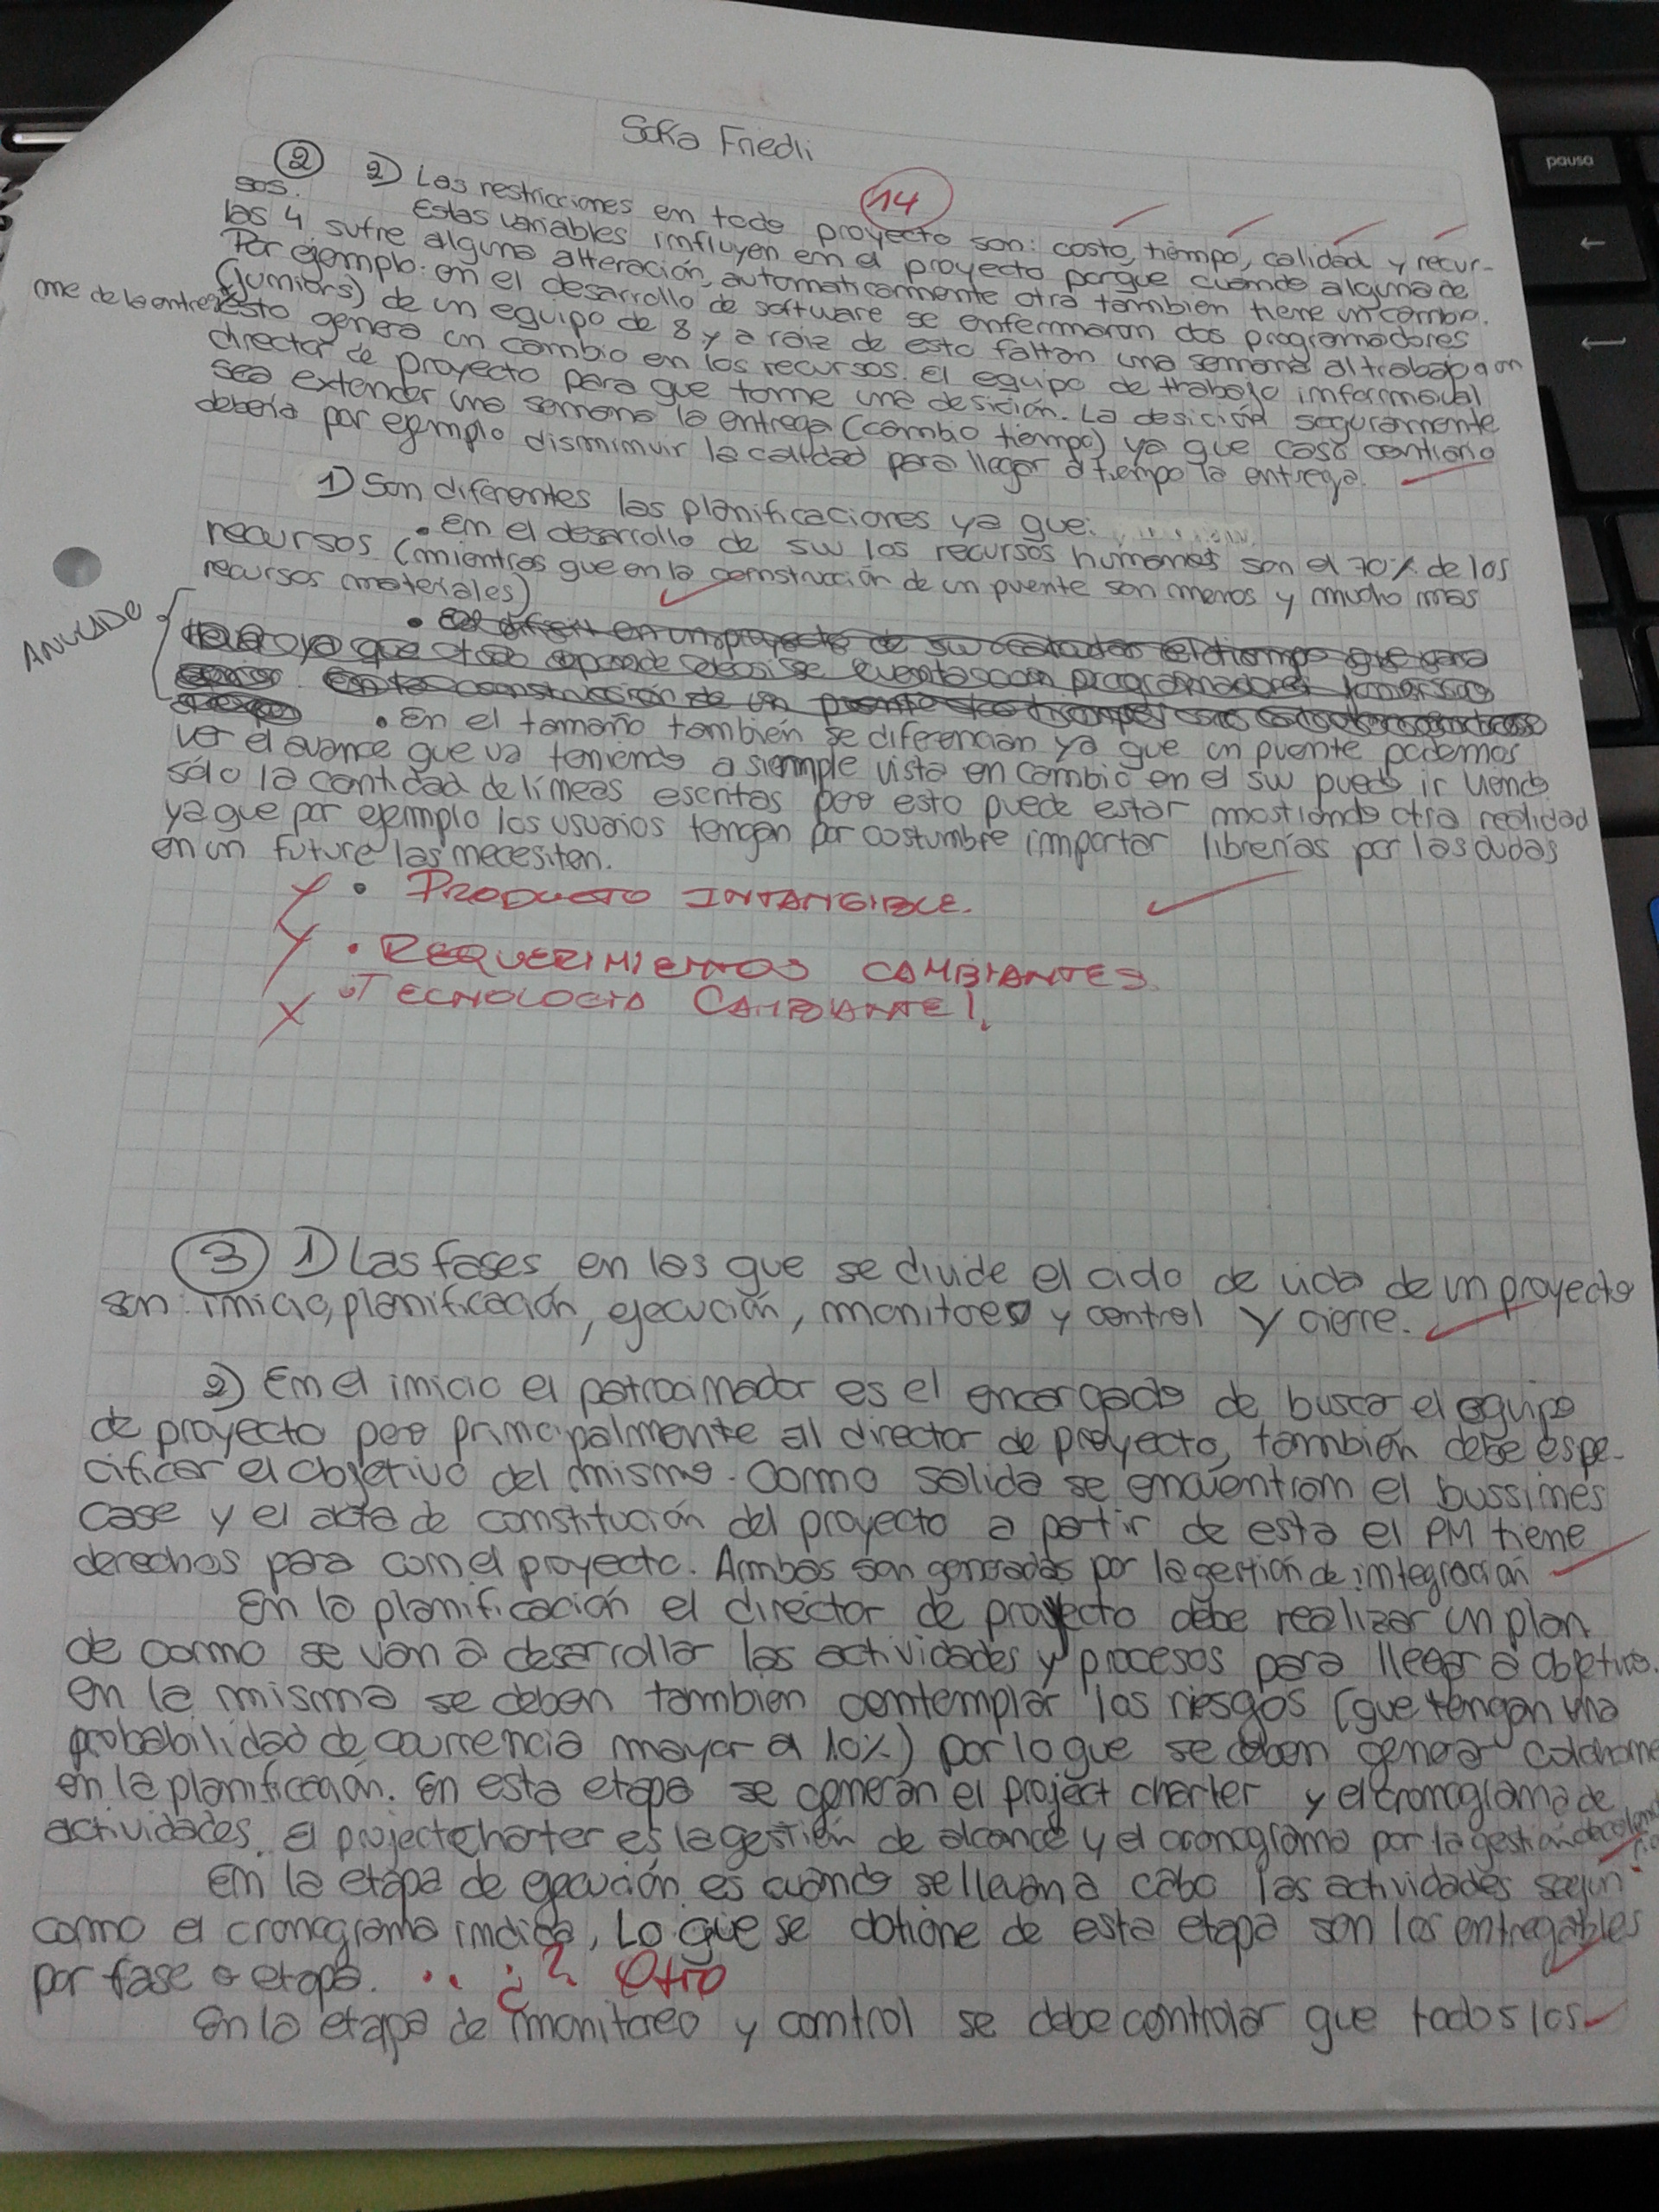 Sofia Friedli
② 2) Las restricciones en todo proyecto son: costo, tiempo, calidad y recur-
sos.
14
Estas variables influyen en el proyecto porque cuando alguna de
las 4 sufre alguna alteración, automaticamente otra tambien tiene un cambio.
Por ejemplo: en el desarrollo de software se enfermaron dos programadores
(juniors) de un equipo de 8 y a raiz de esto faltan una semana al trabajo
esto genera un cambio en los recursos. El equipo de trabajo informa al
director de proyecto para que tome una desición. La desición seguramente
sea extender una semana la entrega (cambio tiempo) ya que caso contrario
debería por ejemplo disminuir la calidad para llegar a tiempo la entrega.
1) Son diferentes las planificaciones ya que:
• en el desarrollo de sw los recursos humanos son el 70% de los
recursos (mientras que en la construcción de un puente son menos y mucho mas
recursos materiales)
ANULADO
• En el tamaño también se diferencian ya que un puente podemos
ver el avance que va teniendo a simple vista en cambio en el sw puedo ir viendo
sólo la cantidad de líneas escritas pero esto puede estar mostrando otra realidad
ya que por ejemplo los usuarios tengan por costumbre importar librerías por las dudas
en un futuro las necesiten.
• PRODUCTO INTANGIBLE.
• REQUERIMIENTOS CAMBIANTES.
• TECNOLOGIA CAMBIANTE!
③ 1) Las fases en las que se divide el ciclo de vida de un proyecto
son: inicio, planificación, ejecución, monitoreo y control y cierre.
2) En el inicio el patrocinador es el encargado de buscar el equipo
de proyecto pero principalmente al director de proyecto, tambien debe espe-
cificar el objetivo del mismo. Como salida se encuentran el bussines
case y el acta de constitución del proyecto a partir de esta el PM tiene
derechos para con el proyecto. Ambas son generadas por la gestión de integración
En la planificación el director de proyecto debe realizar un plan
de como se van a desarrollar las actividades y procesos para llegar a objetivo.
en la misma se deben tambien contemplar los riesgos (que tengan una
probabilidad de ocurrencia mayor a 10%) por lo que se deben generar
en la planificación. En esta etapa se generan el project charter y el cronograma de
actividades. el project charter es la gestión de alcance y el cronograma por la gestión de
En la etapa de ejecución es cuando se llevan a cabo las actividades según
como el cronograma indica, Lo que se obtiene de esta etapa son los entregables
por fase o etapa. ¿? Otro
En la etapa de monitoreo y control se debe controlar que todos los